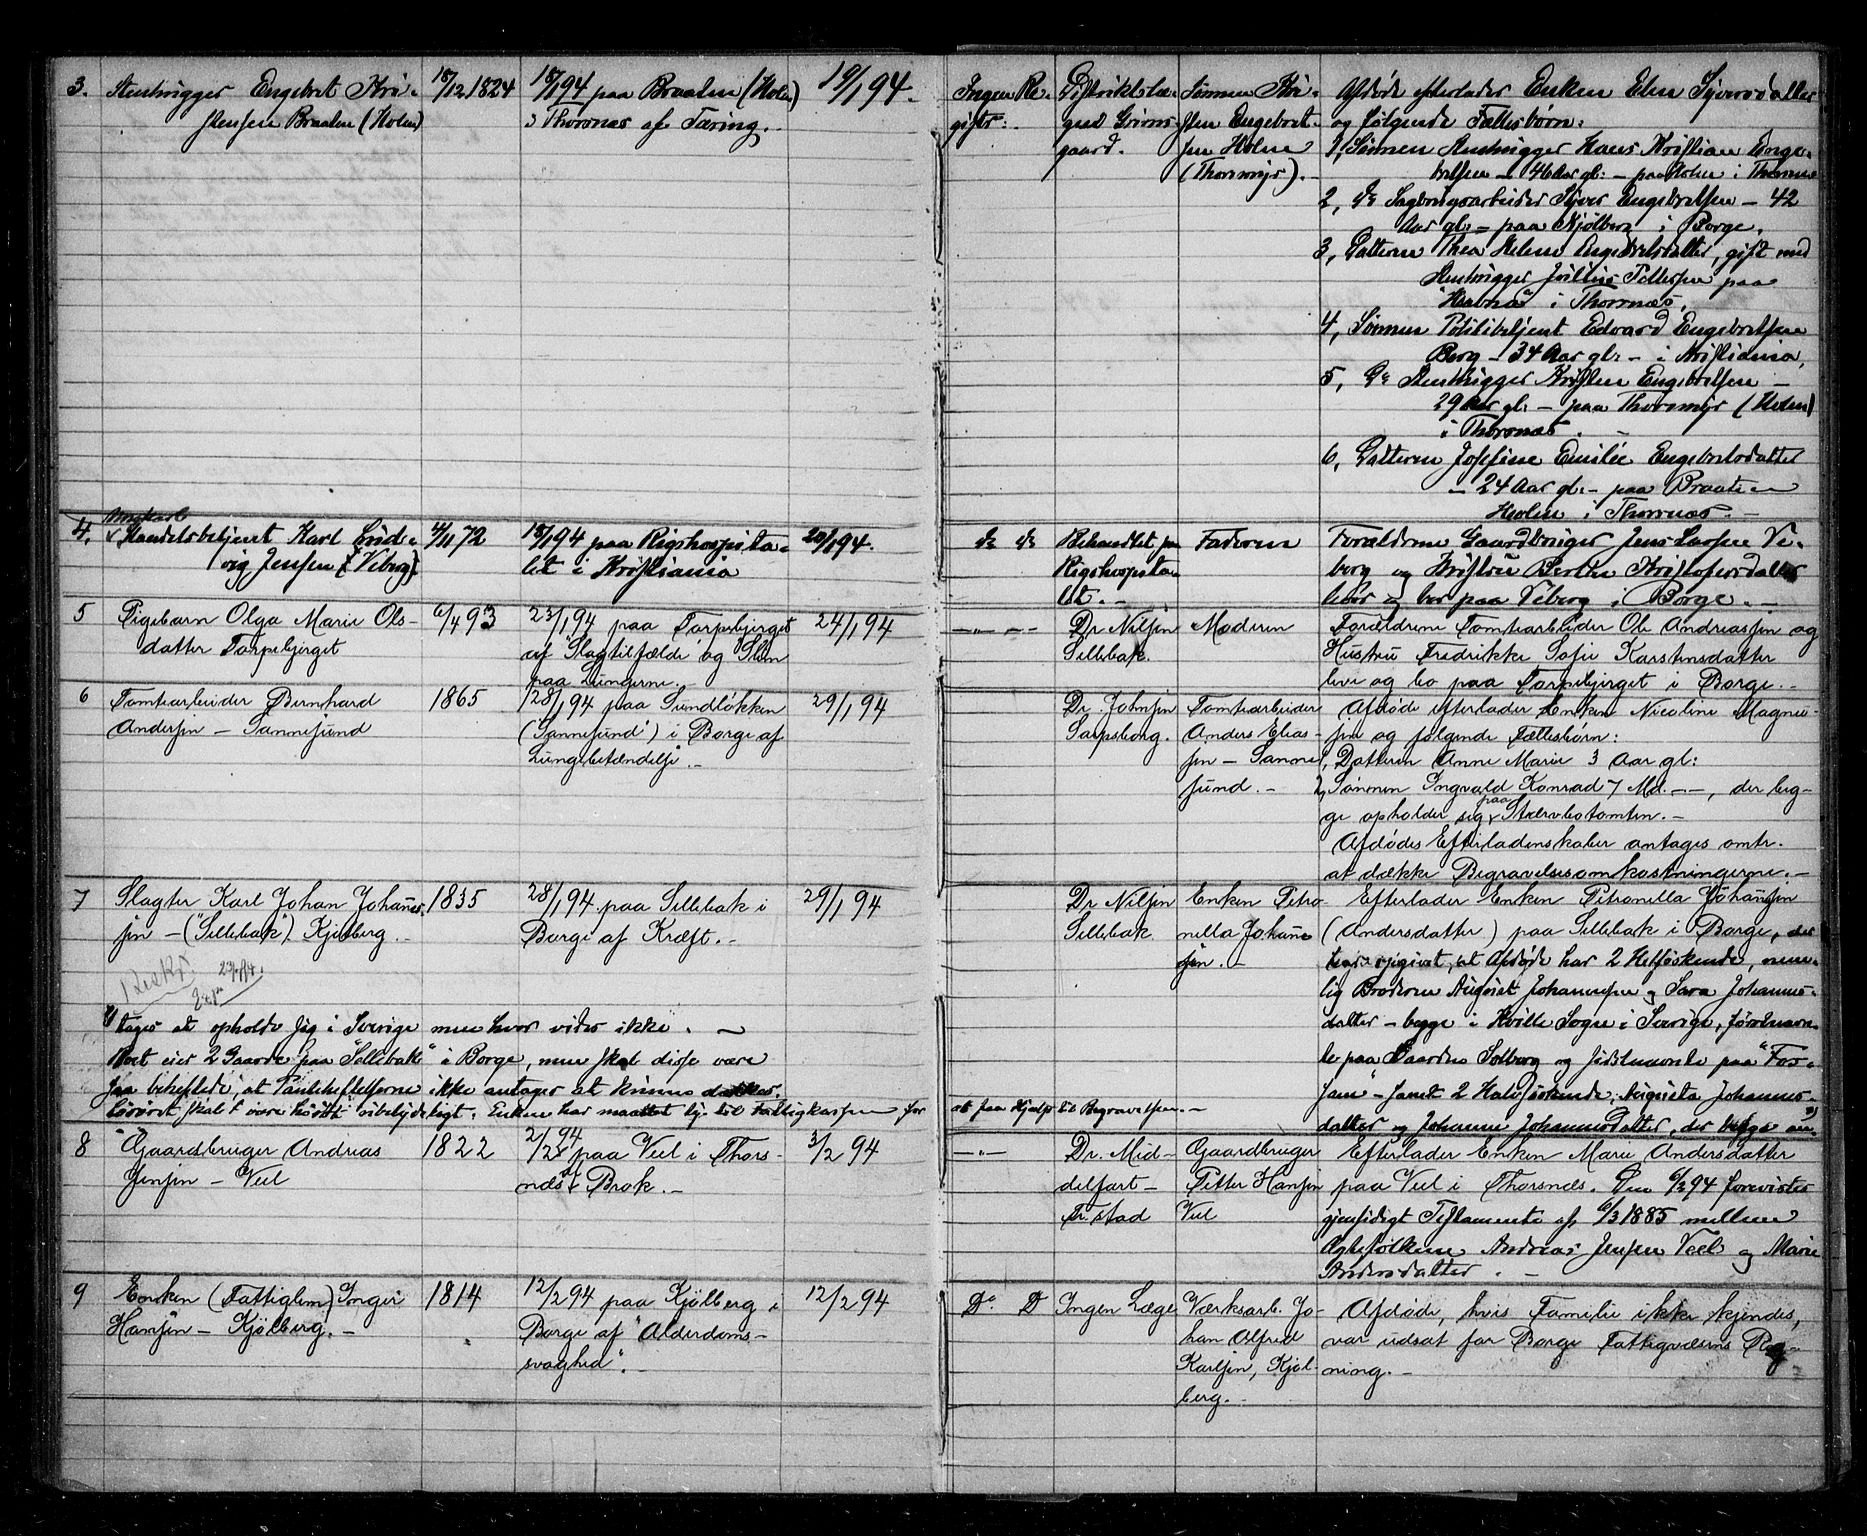 3. Stenhugger Engebret Kri-
stensen Braaten (Holen)
18/12 1824
18/1 94 paa Braaten (Holen)
i Thorsnæs af Tæring.
19/1 94.
Ingen Re-
gistr:.
Distriktslæ-
ge Grims-
gaard.
Sønnen Kri-
sten Engebret-
sen Holen
(Thorsmyr).
Afdøde efterlader Enken Elen Syversdatter
og følgende Fællesbørn:
1, Sønnen Stenhugger Hans Kristian Enge-
bretsen - 46 Aar gl: - paa Holen i Thorsnæs
2, do Sagbrugsarbeider Syver Engebretsen - 42
Aar gl: - paa Kjølberg i Borge.
3, Datteren Thea Helene Engebretsdatter, gift med
Stenhugger Julius Pettersen paa
"Havna" i Thorsnæs.
4, Sønnen Politibetjent Edvard Engebretsen
Berg - 34 Aar gl: - i Kristiania,
5, Do Stenhugger Kristen Engebretsen -
29 Aar gl: - paa Thorsmyr (Holen)
i Thorsnæs.
6, Datteren Josefine Emilie Engebretsdatter
- 24 Aar gl: - paa Braaten
Holen i Thorsnæs. -
ungkarl
4. v Handelsbetjent Karl Lud-
vig Jensen (Viberg)
4/11 72
18/1 94 paa Rigshospita-
let i Kristiania
20/1 94.
do do
Behandlet paa
Rigshospita-
let. -
Faderen
Forældrene Gaardbruger Jens Larsen Vi-
berg og Kristine Bertea Kristofersdatter
lever og bor paa Viberg i Borge. -
5 Pigebarn Olga Marie Ols-
datter Torpebjerget
6/4 93
23/1 94 paa Torpebjerget
af Slagtilfælde og Slim
paa Lungerne. -
24/1 94
-"- -"-
Dr Nilsen
Sellebak.
Moderen
Forældrene Tomtearbeider Ole Andreassen og
Hustru Fredrikke Sofie Karstensdatter
leve og bo paa Torpebjerget i Borge. -
6 Tomtearbeider Bernhard
Andersen - Sannesund
1865
28/1 94 paa Sundløkken
(Sannesund) i Borge af
Lungebetændelse. -
29/1 94
Dr. Johnsen
Sarpsborg.
Tomtearbeider
Anders Elias-
sen - Sanne-
sund. -
Afdøde efterlader Enken Nicoline Magnus-
sen og følgende Fællesbørn:
1, Datteren Anne Marie 3 Aar gl:
2, Sønnen Ingvald Konrad 7 Md. - -, der beg-
paa
ge opholder sig v Stærvbotomten. -
Afdødes Efterladenskaber antages omtr.
at dække Begravelsesomkostningerne. -
7 Slagter Karl Johan Johannes-
sen - ("Sellebak") Kjølberg. -
1835
28/1 94 paa Sellebak i
Borge af Kræft. -
29/1 94
Dr Nilsen
Sellebak.
Enken Petro-
nella Johanne-
sen. -
Efterlader Enken Petronella Johansen
(Andersdatter) paa Sellebak i Borge, der
har opgivet, at Afdøde har 2 Helsøskende, nem-
lig Broderen August Johannesen og Sara Johannes-
datter - begge i Kville Sogn i Sverige, førstnævn-
te paa Gaarden Solberg og sidstnævnte paa "Fos-
sane" - samt 2 Halvsøskende, Augusta Johannes-
datter og Johanne Johannesdatter, der begge an-
tages at opholde sig i Sverige men hvor vides ikke. -
Boet eier 2 Gaarde paa "Sellebak" i Borge, men skal disse være
saa beheftede, at Pantehæftelserne ikke antages at kunne dækkes.
Løsøret skal være ubetydeligt. Enken har maattet ty til Fattigkassen for
at faa Hjælp til Begravelsen. -
8 Gaardbruger Andreas
Jensen - Veel
1822
2/2 94 paa Veel i Thors-
næs af Brok. -
3/2 94
-"-
Dr. Mid-
delfart -
Fr.stad
Gaardbruger
Petter Hansen
Veel
Efterlader Enken Marie Andersdatter
paa Veel i Thorsnæs. Den 6/3 94 forevistes
gjensidigt Testamente af 6/3 1885 mellem
Ægtefolkene Andreas Jensen Veel og Marie
Andersdatter. -
9 Enken (Fattiglem) Inger
Hansen - Kjølberg. -
1814
12/2 94 paa Kjølberg i
Borge af "Alderdoms-
svaghed".
12/2 94
Do D
Ingen Læge
Værksarb. Jo-
han Alfred
Karlsen, Kjøl-
berg. -
Afdøde, hvis Familie ikke kjendes,
var udsat for Borge Fattigvæsens Reg-
ning. -